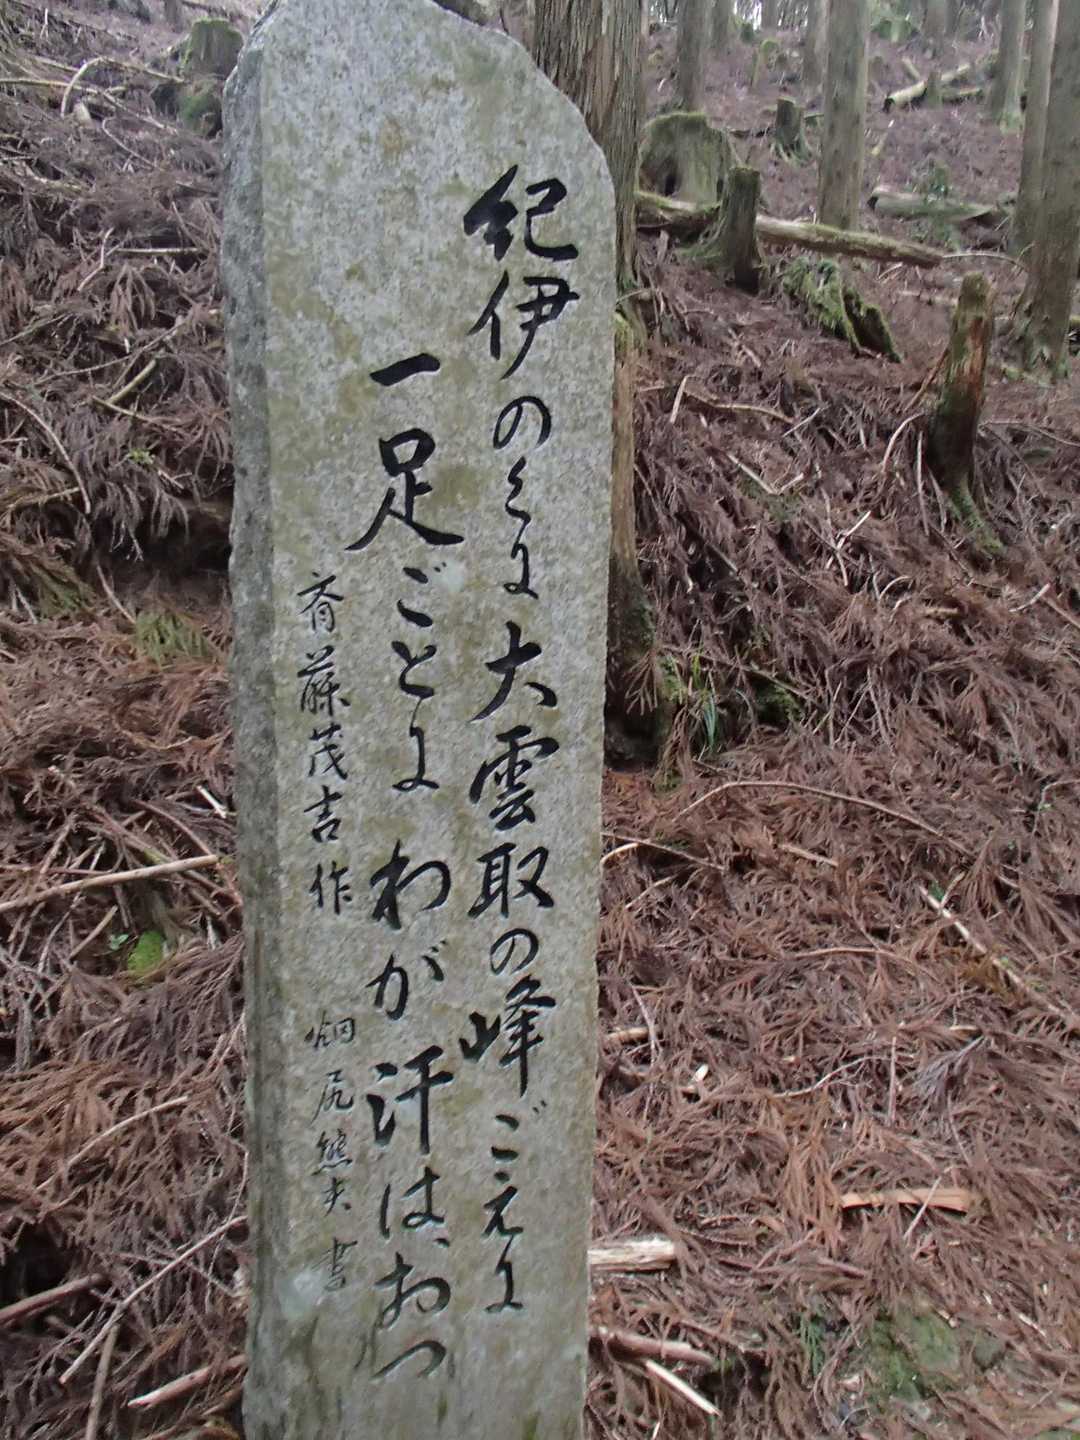 紀伊のくに大雲取の峰ごえに
一足ごとにわが汗はおつ
斉藤茂吉作
畑尻熊夫書